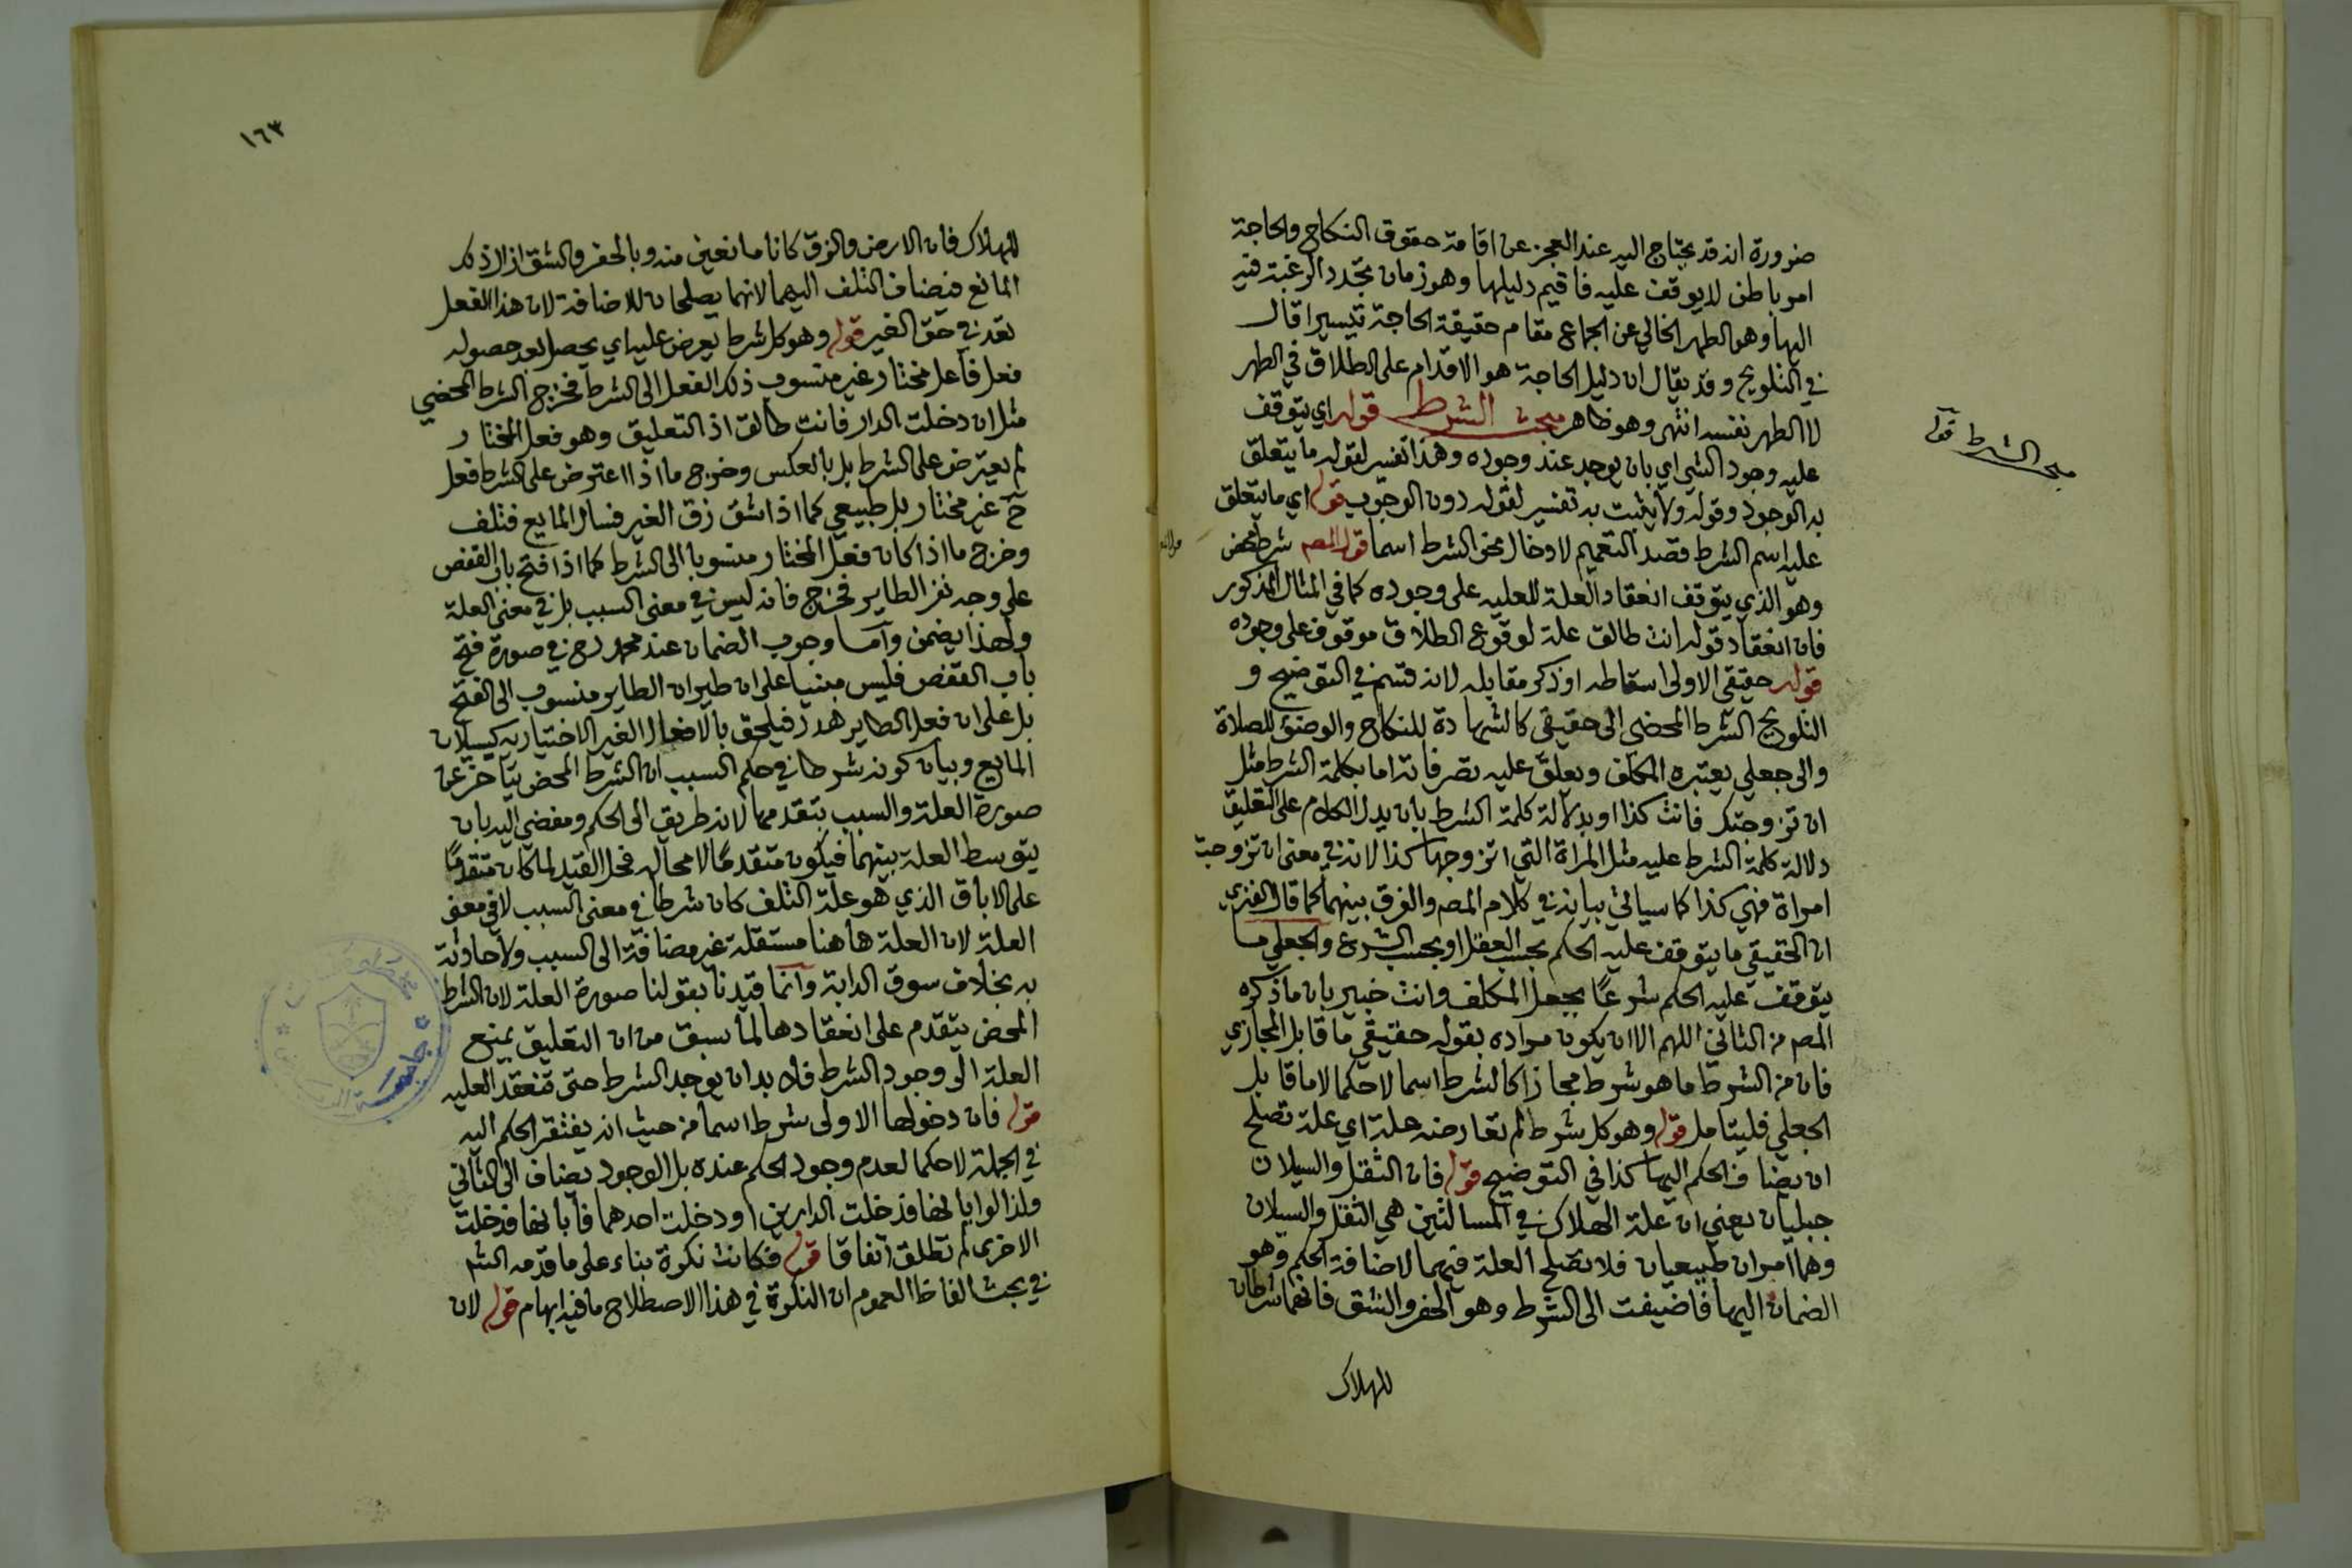 ضرورة انه قد يحتاج اليه عند العجز عن اقامة حقوق النكاح والحاجة
امر باطن لا يوقف عليه فاقيم دليلها وهو زمان تجدد الرغبة فيه
اليها وهو الطهر الخالي عن الجماع مقام حقيقة الحاجة تيسيرا قال
في التلويح وقد يقال ان دليل الحاجة هو الاقدام على الطلاق في الطهر
لا الطهر نفسه انتهى وهو ظاهر مبحث الشرط قوله اي يتوقف
عليه وجود الشي اي بان يوجد عند وجوده وهذا تفسير لقوله ما يتعلق
به الوجود وقوله ولا يثبت به تفسير لقوله دون الوجوب قوله اي ما يتعلق
عليه اسم الشرط قصد التعميم لادخال نحو الشرط اسما قول المص شرط محض
وهو الذي يتوقف انعقاد العلة للعلية على وجوده كما في المثال المذكور
فان انعقاد قوله انت طالق علة لوقوع الطلاق موقوف على وجوده
قوله حقيقي الاولى اسقاطه او ذكر مقابله لانه قسم في التوضيح و
التلويح الشرط المحض الى حقيقي كالشهادة للنكاح والوضوء للصلاة
والى جعلي يعتبره المكلف ويعلق عليه تصرفاته اما بكلمة الشرط مثل
ان تزوجتك فانت كذا او بدلالة كلمة الشرط بان يدل الكلام على التعليق
دلالة كلمة الشرط عليه مثل المراة التي اتزوجها كذا لانه في معنى ان تزوجت
امراة فهي كذا كما سياتي بيانه في كلام المص والفرق بينهما كما قال الفنري
ان الحقيقي ما يتوقف عليه الحكم بحسب العقل او بحسب الشرع والجعلي ما
يتوقف عليه الحكم شرعًا بجعل المكلف وانت خبير بان ما ذكره
المص من الثاني اللهم الا ان يكون مراده بقوله حقيقي ما قابل المجازي
فان من الشرط ما هو شرط مجازا كالشرط اسما لا حكما لا ما قابل
الجعلي فليتامل قوله وهو كل شرط لم تعارضه علة اي علة تصلح
ان يضاف الحكم اليها كذا في التوضيح قوله فان الثقل والسيلان
جبليان يعني ان علة الهلاك في المسالتين هي الثقل والسيلان
وهما امران طبيعيان فلا تصلح العلة فيهما لاضافة الحكم وهو
الضمان اليها فاضيفت الى الشرط وهو الحفر والشق فانهما شرطان
للهلاك
مبحث الشرط قوله
١٦٣
للهلاك فان الارض والزق كانا مانعين منه وبالحفر والشق ازال ذلك
المانع فيضاف التلف اليهما لانهما يصلحان للاضافة لان هذا الفعل
تعد في حق الغير قوله وهو كل شرط يعرض عليه اي يحصل بعد حصوله
فعل فاعل مختار غير منسوب ذلك الفعل الى الشرط فخرج الشرط المحض
مثل ان دخلت الدار فانت طالق اذ التعليق وهو فعل المختار
لم يعترض على الشرط بل بالعكس وخرج ما اذا اعترض على الشرط فعل
غير مختار بل طبيعي كما اذا شق زق الغير فسال المايع فتلف
وخرج ما اذا كان فعل المختار منسوبا الى الشرط كما اذا فتح باب القفص
على وجه نفر الطاير فخرج فانه ليس في معنى السبب بل في معنى العلة
ولهذا يضمن وأما وجوب الضمان عند محمد رح في صورة فتح
باب القفص فليس مبنيا على ان طيران الطاير منسوب الى الفتح
بل على ان فعل الطاير هدر فيلحق بالافعال الغير الاختيارية كسيلان
المايع وبيان كونه شرطا في حكم السبب ان الشرط المحض يتاخر عن
صورة العلة والسبب يتقدمها لانه طريق الى الحكم ومفضي اليه بان
يتوسط العلة بينهما فيكون متقدمًا لا محالة فحل القيد لما كان متقدمًا
على الاباق الذي هو علة التلف كان شرطا في معنى السبب لا في معنى
العلة لان العلة هاهنا مستقلة غير مضافة الى السبب ولا حادثة
به بخلاف سوق الدابة وانما قيدنا بقولنا صورة العلة لان الشرط
المحض يتقدم على انعقادها لما سبق من ان التعليق يمنع
العلة الى وجود الشرط فلا بد ان يوجد الشرط حتى تنعقد العلية
قوله فان دخولها الاولى شرط اسما من حيث انه يفتقر الحكم اليه
في الجملة لا حكما لعدم وجود الحكم عنده بل الوجود يضاف الى الثاني
ولذا لو ابانها فدخلت الدارين او دخلت احدهما فابانها فدخلت
الاخرى لم تطلق اتفاقا قوله فكانت نكرة بناء على ما قدمه الشم
في بحث الفاظ العموم ان النكرة في هذا الاصطلاح ما فيه ابهام قوله لان